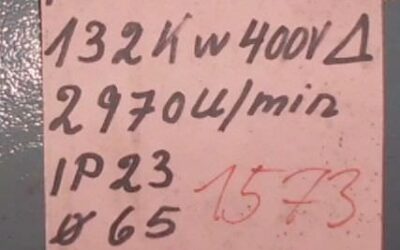 132Kw400VΔ
2970U/min
IP23
ø65 1573